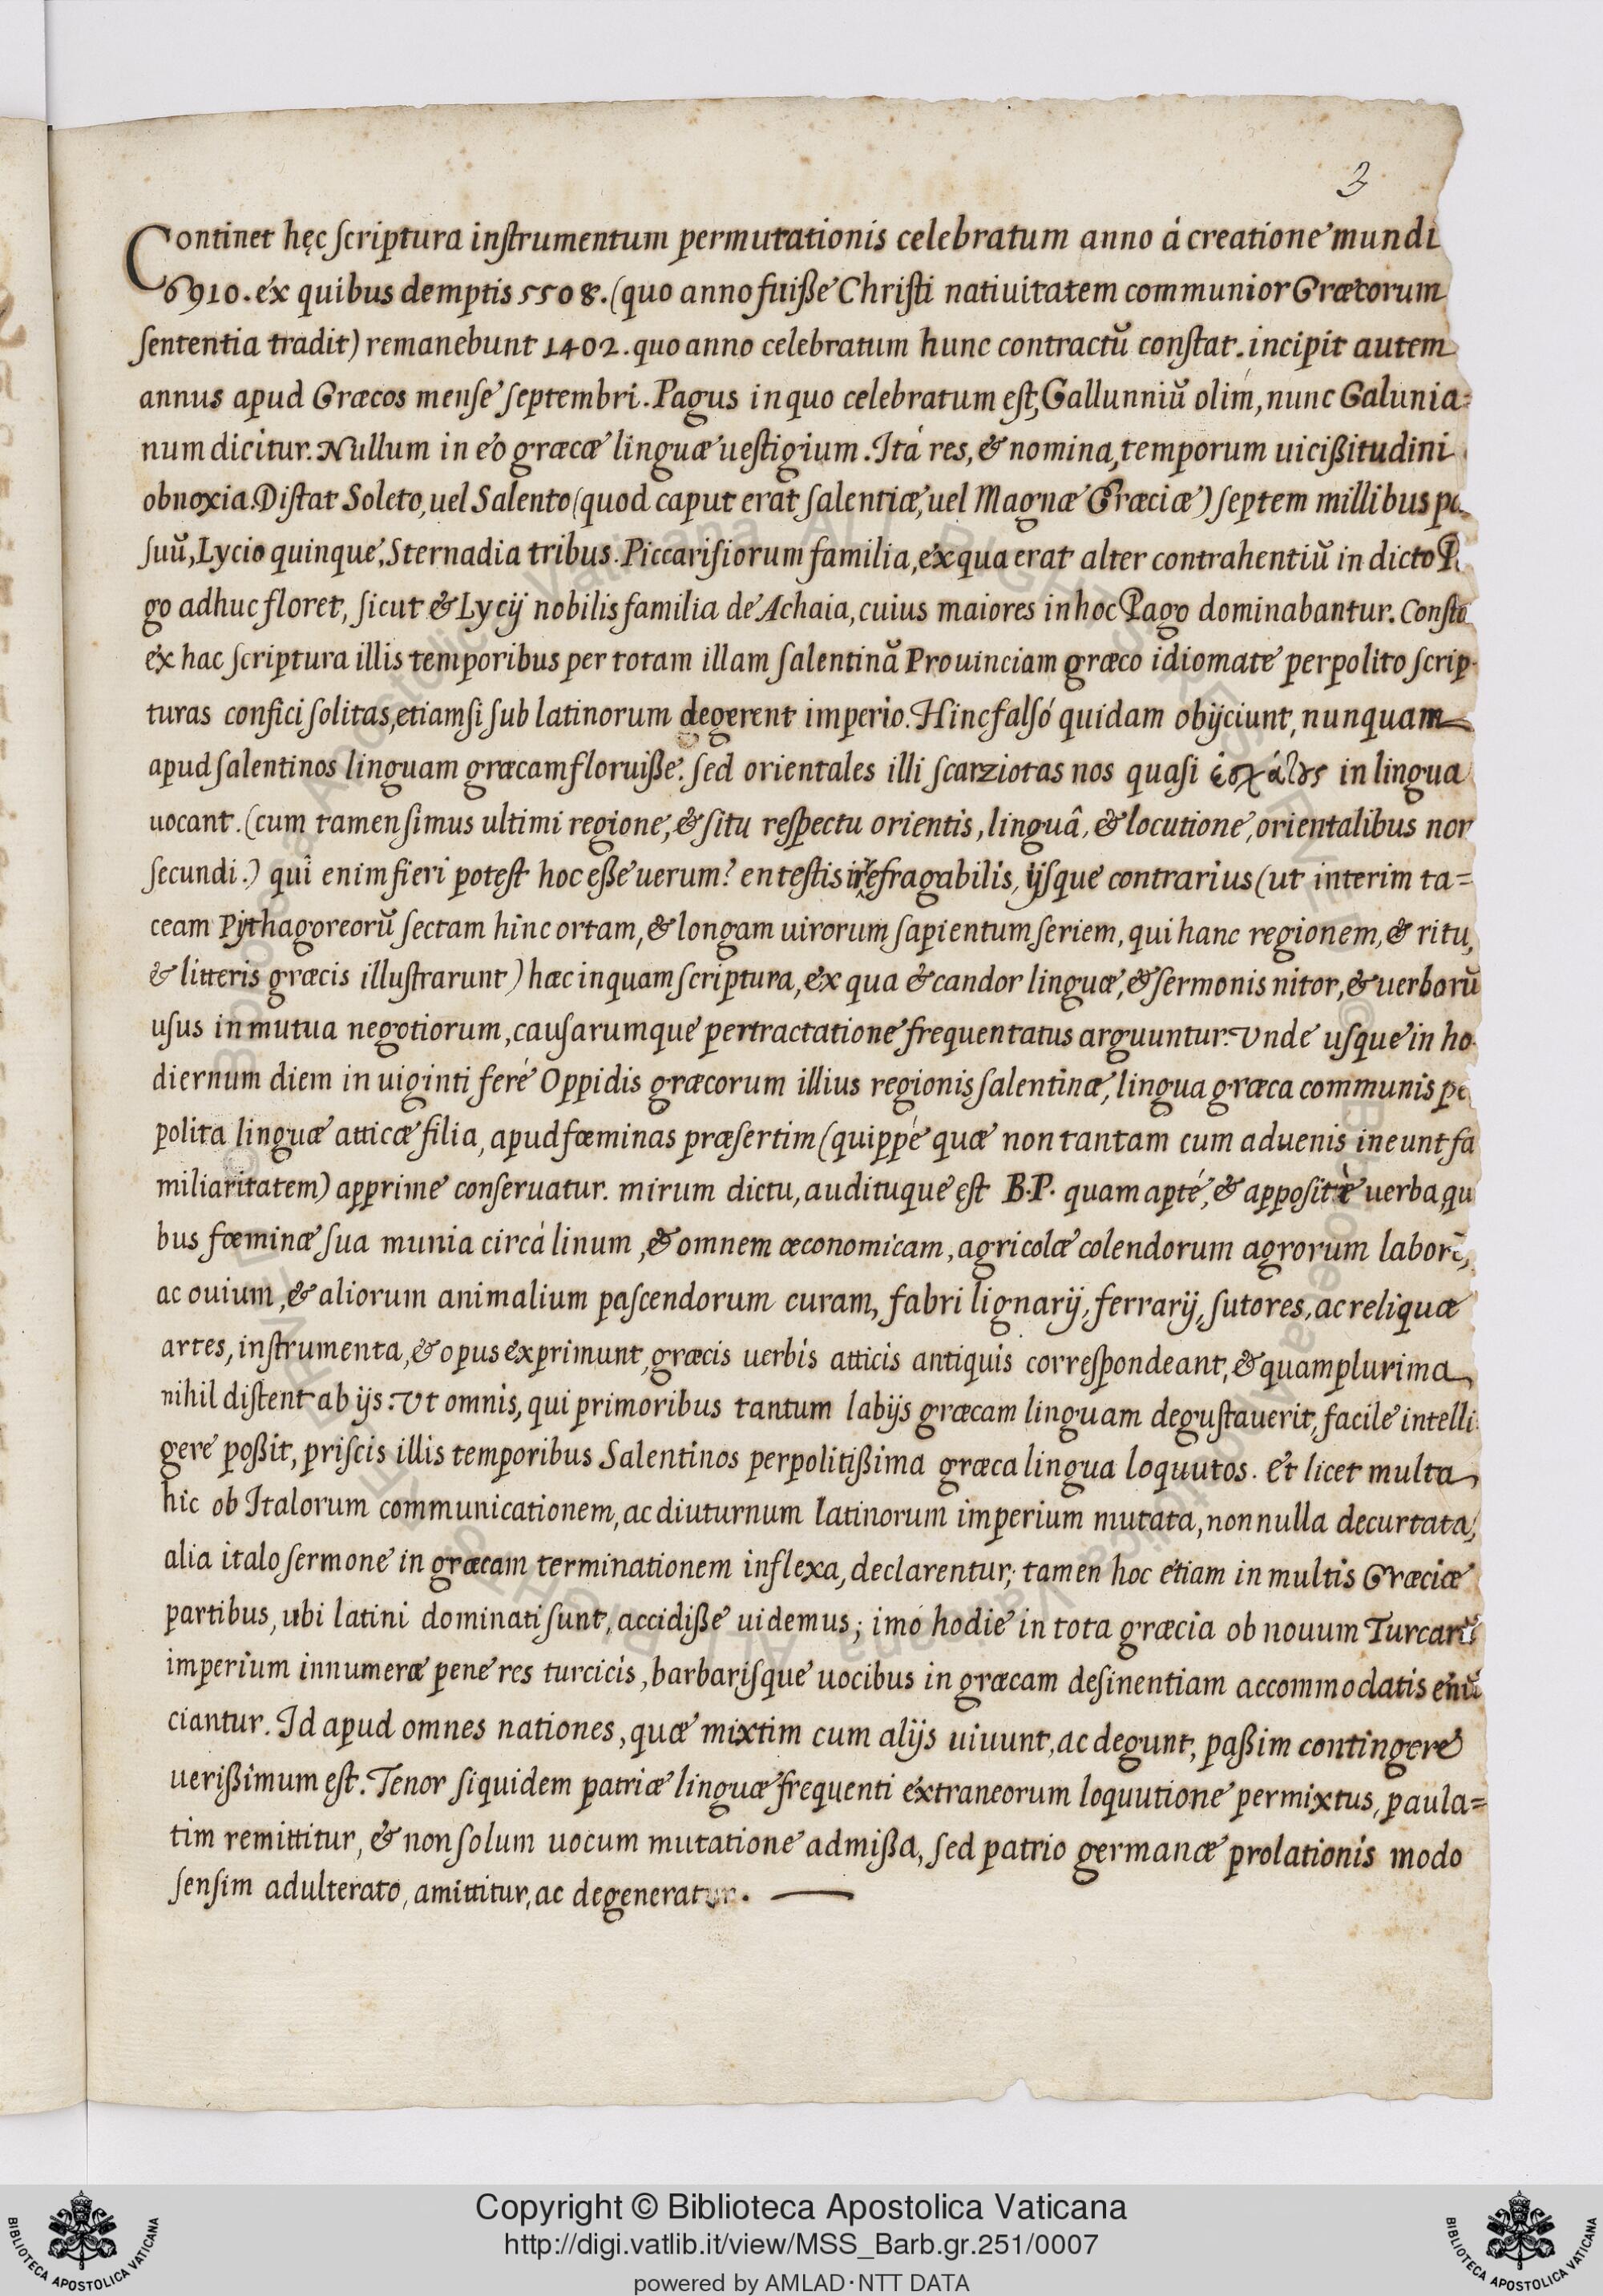 3
Continet hęc scriptura instrumentum permutationis celebratum anno á creatione mundi
6910. ex quibus demptis 5508. (quo anno fuiße Christi natiuitatem communior Græcorum
sententia tradit) remanebunt 1402. quo anno celebratum hunc contractũ constat. incipit autem
annus apud Græcos mense septembri. Pagus in quo celebratum est, Gallunniũ olim, nunc Galunia=
num dicitur. Nullum in eo græcæ linguæ uestigium. Itá res, & nomina, temporum uicißitudini
obnoxia. Distat Soleto, uel Salento (quod caput erat salentiæ, uel Magnæ Græciæ) septem millibus pa
suũ, Lycio quinque, Sternadia tribus. Piccarisiorum familia, ex qua erat alter contrahentiũ in dicto P
go adhuc floret, sicut & Lycij nobilis familia de Achaia, cuius maiores in hoc Pago dominabantur. Consta
ex hac scriptura illis temporibus per totam illam salentinã Prouinciam græco idiomate perpolito scrip-
turas confici solitas, etiamsi sub latinorum degerent imperio. Hinc falsó quidam obijciunt, nunquam
apud salentinos linguam græcam floruiße. sed orientales illi scarziotas nos quasi ἐσχάτους in lingua
uocant. (cum tamen simus ultimi regione, & situ respectu orientis, linguâ, & locutione, orientalibus non
secundi.) quî enim fieri potest hoc eße uerum? en testis irrefragabilis, ijsque contrarius (ut interim ta=
ceam Pythagoreorũ sectam hinc ortam, & longam uirorum sapientum seriem, qui hanc regionem, & ritu,
& litteris græcis illustrarunt) hæc inquam scriptura, ex qua & candor linguæ, & sermonis nitor, & uerborũ
usus in mutua negotiorum, causarumque pertractatione frequentatus arguuntur. Vnde usque in ho-
diernum diem in uiginti feré Oppidis græcorum illius regionis salentinæ, lingua græca communis pe
polita linguæ atticæ filia, apud fœminas præsertim (quippé quæ non tantam cum aduenis ineunt fa
miliaritatem) apprime conseruatur. mirum dictu, audituque est B.P. quam apté, & appositè uerba, qu
bus fœminæ sua munia circá linum, & omnem œconomicam, agricolæ colendorum agrorum laborẽ,
ac ouium, & aliorum animalium pascendorum curam, fabri lignarij, ferrarij, sutores, ac reliquæ
artes, instrumenta, & opus exprimunt, græcis uerbis atticis antiquis correspondeant, & quamplurima
nihil distent ab ijs: Vt omnis, qui primoribus tantum labijs græcam linguam degustauerit, facile intelli-
gere poßit, priscis illis temporibus Salentinos perpolitißima græca lingua loquutos. Et licet multa
hic ob Italorum communicationem, ac diuturnum latinorum imperium mutata, nonnulla decurtata,
alia italo sermone in græcam terminationem inflexa, declarentur; tamen hoc etiam in multis Græciæ
partibus, ubi latini dominati sunt, accidiße uidemus; imó hodie in tota græcia ob nouum Turcarũ
imperium innumeræ pene res turcicis, barbarisque uocibus in græcam desinentiam accommodatis enũ
ciantur. Id apud omnes nationes, quæ mixtim cum alijs uiuunt, ac degunt, paßim contingere
uerißimum est. Tenor siquidem patriæ linguæ frequenti extraneorum loquutione permixtus, paula=
tim remittitur, & non solum uocum mutatione admißa, sed patrio germanæ prolationis modo
sensim adulterato, amittitur, ac degeneratur.
Copyright © Biblioteca Apostolica Vaticana
http://digi.vatlib.it/view/MSS_Barb.gr.251/0007
powered by AMLAD·NTT DATA
BIBLIOTECA APOSTOLICA VATICANA
BIBLIOTECA APOSTOLICA VATICANA